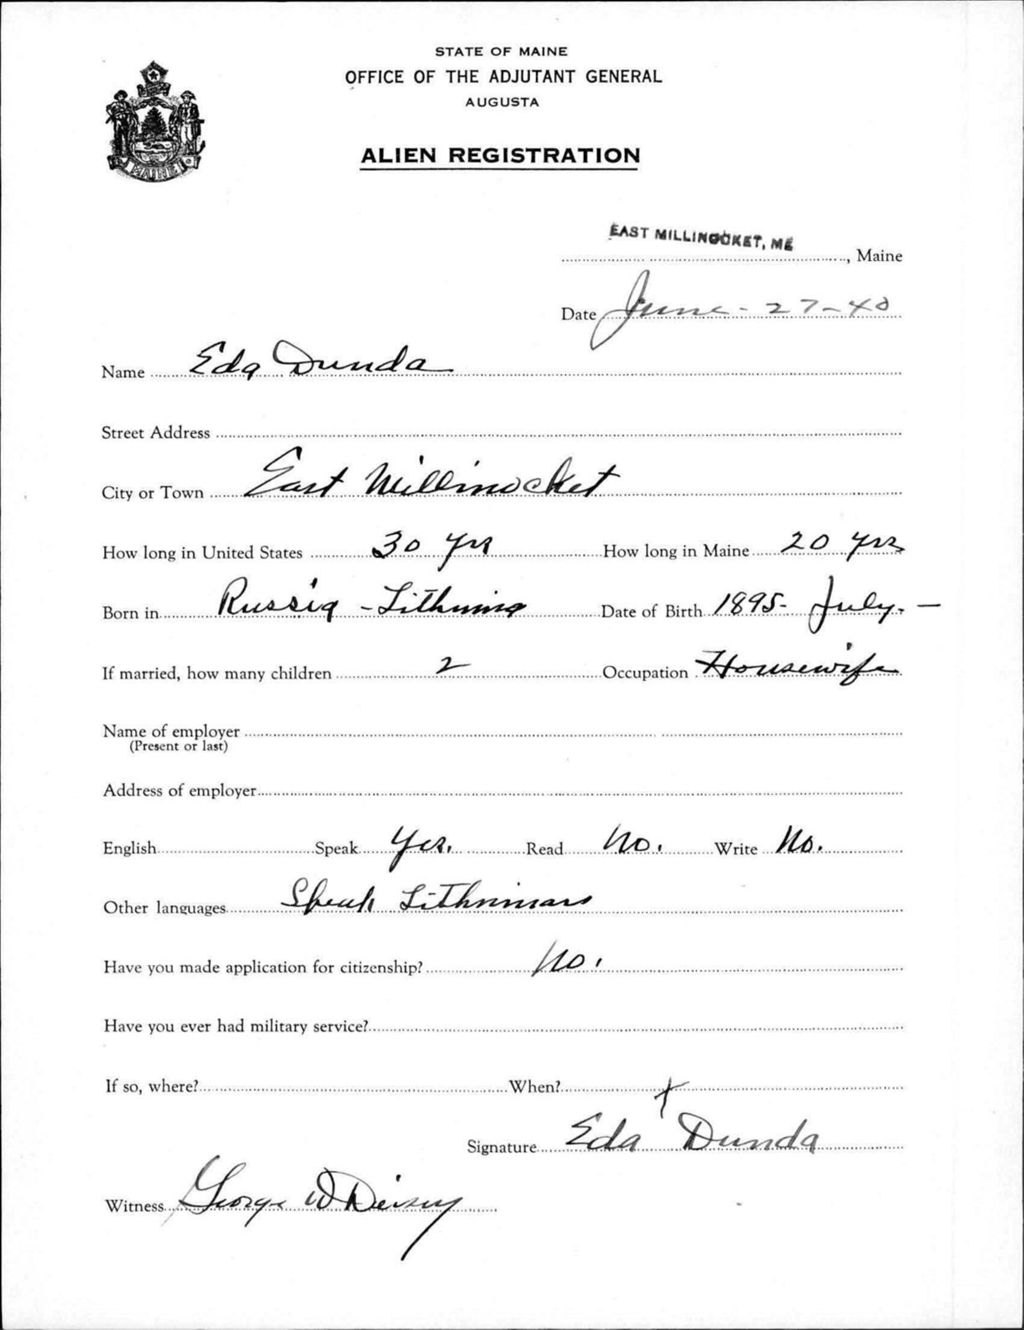 STATE OF MAINE
OFFICE OF THE ADJUTANT GENERAL
AUGUSTA
MAINE
ALIEN REGISTRATION
EAST MILLINOCKET, ME
, Maine
Date June - 27 - 40
Name Eda Dunda
Street Address
City or Town East Millinocket
How long in United States 30 yrs How long in Maine 20 yrs
Born in Russia - Date of Birth 1895 - July. -
If married, how many children 2 Occupation Housewife
Name of employer
(Present or last)
Address of employer
English Speak Yes. Read No. Write No.
Other languages Speak
Have you made application for citizenship? No.
Have you ever had military service?
If so, where? When?
x
Signature Eda Dunda
Witness George W